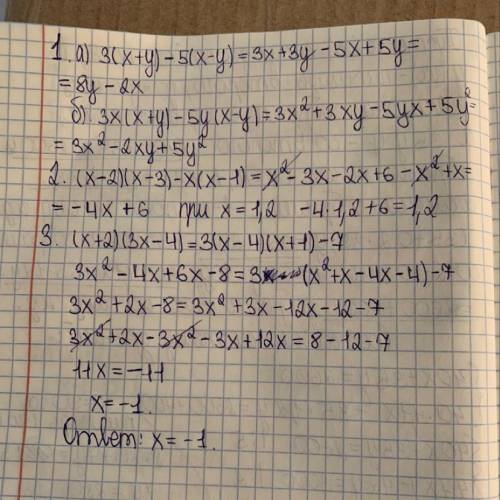 1. а) 3(x+y)-5(x-y)=3x+3y-5x+5y=
=8y-2x
б) 3x(x+y)-5y(x-y)=3x²+3xy-5yx+5y²=
=3x²-2xy+5y²
2. (x-2)(x-3)-x(x-1)=x²-3x-2x+6-x²+x=
=-4x+6 при x=1,2 -4·1,2+6=1,2
3. (x+2)(3x-4)=3(x-4)(x+1)-7
3x²-4x+6x-8=3(x²+x-4x-4)-7
3x²+2x-8=3x²+3x-12x-12-7
3x²+2x-3x²-3x+12x=8-12-7
11x=-11
x=-1.
Ответ: x=-1.